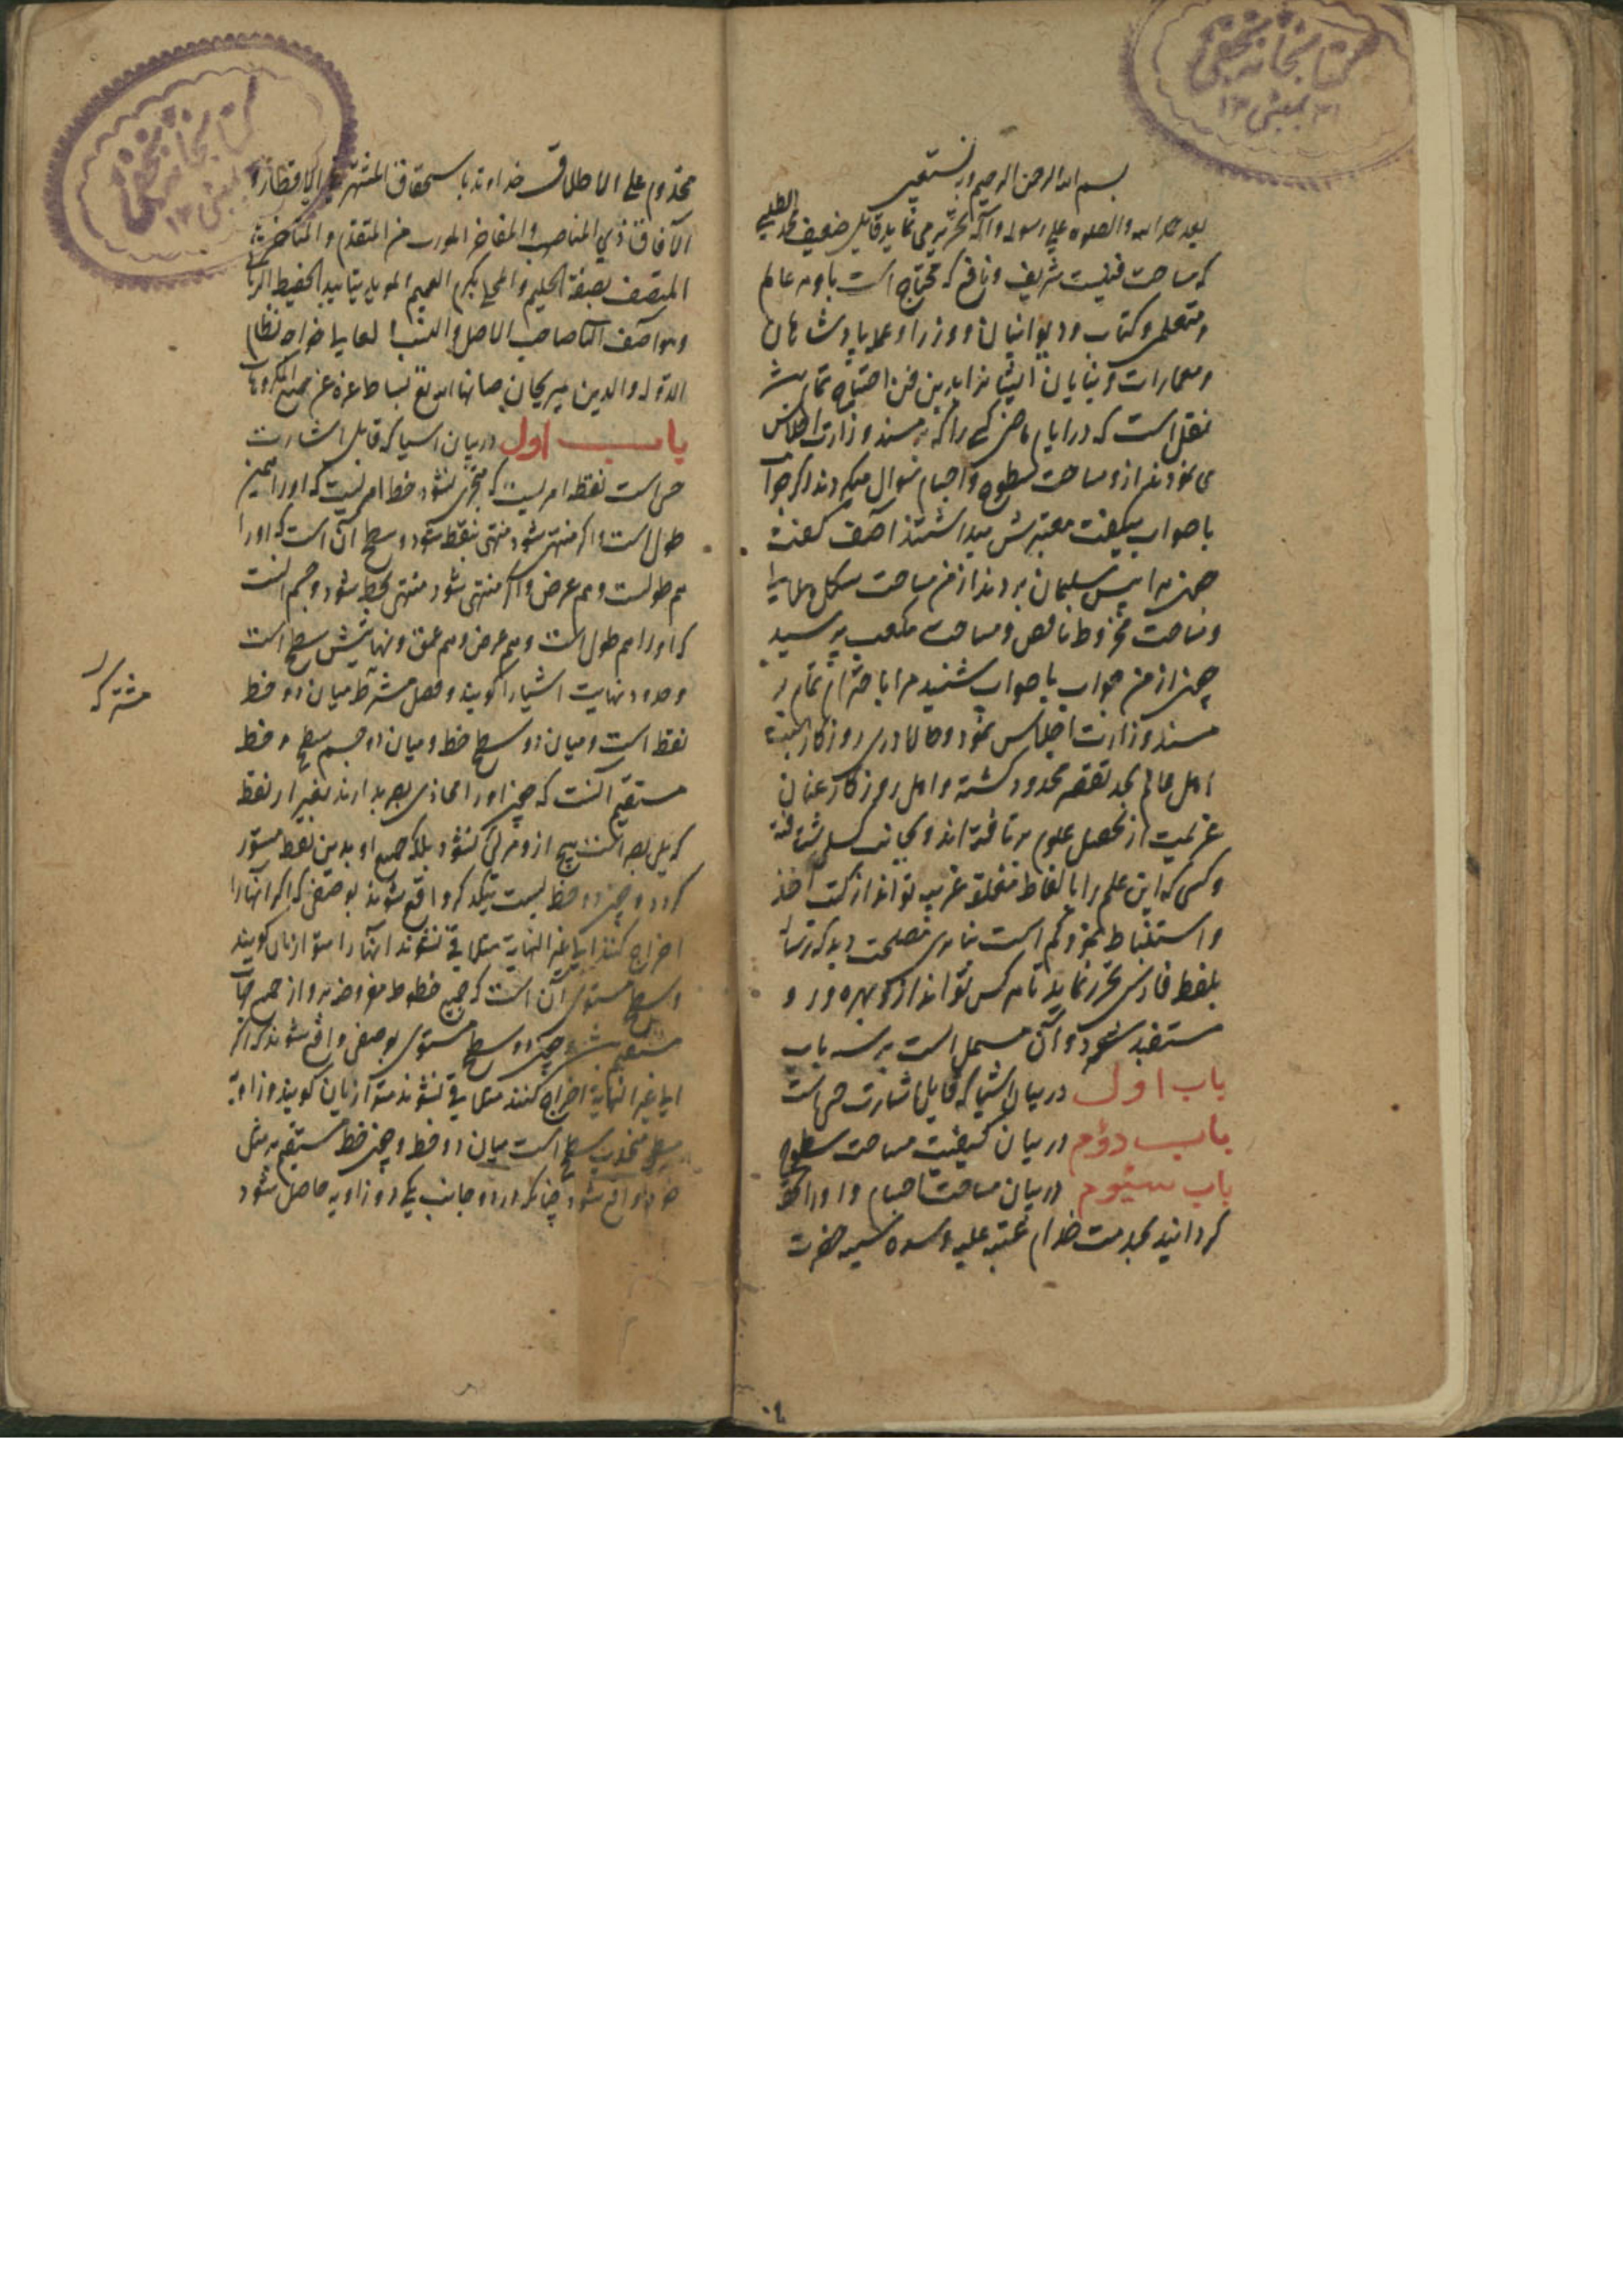 بسم الله الرحمن الرحیم وبه نستعین
بعد حمد الله والصلوة علی رسوله وآله تحریر می نماید قایل ضعیف محمد الطلبی
که مساحت فنیست شریف و نافع که محتاج است باو هر عالم
ومتعلمی و کتاب و دیوانیان و وزرا و عمله پادشاهان
و معمارات و بنایان ایشانرا بدین فن احتیاج تمامست
نقل است که در ایام ماضی کسی را که بر مسند وزارت اجلاس
می نمودند ازو مساحت سطوح و اجسام سوال میکردند اگر جواب
با صواب میگفت معتبرش میداشتند آصف گفت
چون مرا پیش سلیمان بردند از من مساحت شکل هلالی را
و مساحت مخروط ناقص و مساحت مکعب پرسید
چون از من جواب با صواب شنید مرا با احترام تمام بر
مسند وزارت اجلاس نمود و حالا درین روزکار
اهل عالم بحد تقصیر محدود کشته و اهل روزکار عنان
عزیمت از تحصیل علوم بر تافته اند و بجانب کسل شتافته
و کسی که این علم را با لفاظ مغلقه عربیه تواند از کتب اخذ
و استنباط نمود کم است بنا برین مصلحت دید که رساله
بلفظ فارسی تحریر نماید تا هر کس تواند ازو بهره ور و
مستفید شود و آن مشتمل است بر سه باب
باب اول در بیان اشیا که قابل اشارت حس است
باب دوم در بیان کیفیت مساحت سطوح
باب سیوم در بیان مساحت اجسام و اورا تحفه
کردانید بخدمت خدام عتبه علیه و سده سنیه حضرت
مخدوم علی الاطلاق خداوند باستحقاق المشتهر فی الاقطار و
الآفاق ذی المناصب والمفاخر المورث من المتقدم والمتاخر
المتصف بصفة الحلیم والمحلی بکرم العمیم الموید بتایید الحفیظ
وهو آصف الثانی صاحب الاصل والنسب خواجه نظام
الدوله والدین میریجان صانها الله تع بساط عزه عن جمیع المکروهات
باب اول در بیان اشیا که قابل اشارت
حس است نقطه امریست که متجزی نشود خط امریست که اورا همین
طول است و اگر منتهی شود منتهی بنقط شود و سطح آن است که اورا
هم طولست و هم عرض و اگر منتهی شود منتهی بخط شود و جسم آنست
که اورا هم طول است و هم عرض و هم عمق و نهایتش سطح است
و حدود نهایت اشیا را کویند و فصل مشترک میان دو خط
نقط است و میان دو سطح خط و میان دو جسم سطح و خط
مستقیم آنست که چون اورا محاذی بصر بدارند بغیر از نقط
که یلی بصر است هیچ ازو مرئی نشود بلکه جمیع او بدین نقط مستور
کردد و چون دو خط بیست یکدیکر واقع شوند بوصفی که اکر آنها را
اخراج کنند الی غیر النهایة متلاقی نشوند آنها را متوازیان کویند
و سطح مستوی آن است که جمیع خطوط مفروضه برو از جمیع جهات
مستقیم باشند و چون دو سطح مستوی بوصفی واقع شوند که اکر
الی غیر النهایة اخراج کنند متلاقی نشوند متوازیان کویند و زاویة
سطح منحدب سطح است میان دو خط و چون خط مستقیم بر مثل
خود واقع شود چنانکه در دو جانب یکی دو زاویه حاصل شود
مشترک
کتابخانه نجفی